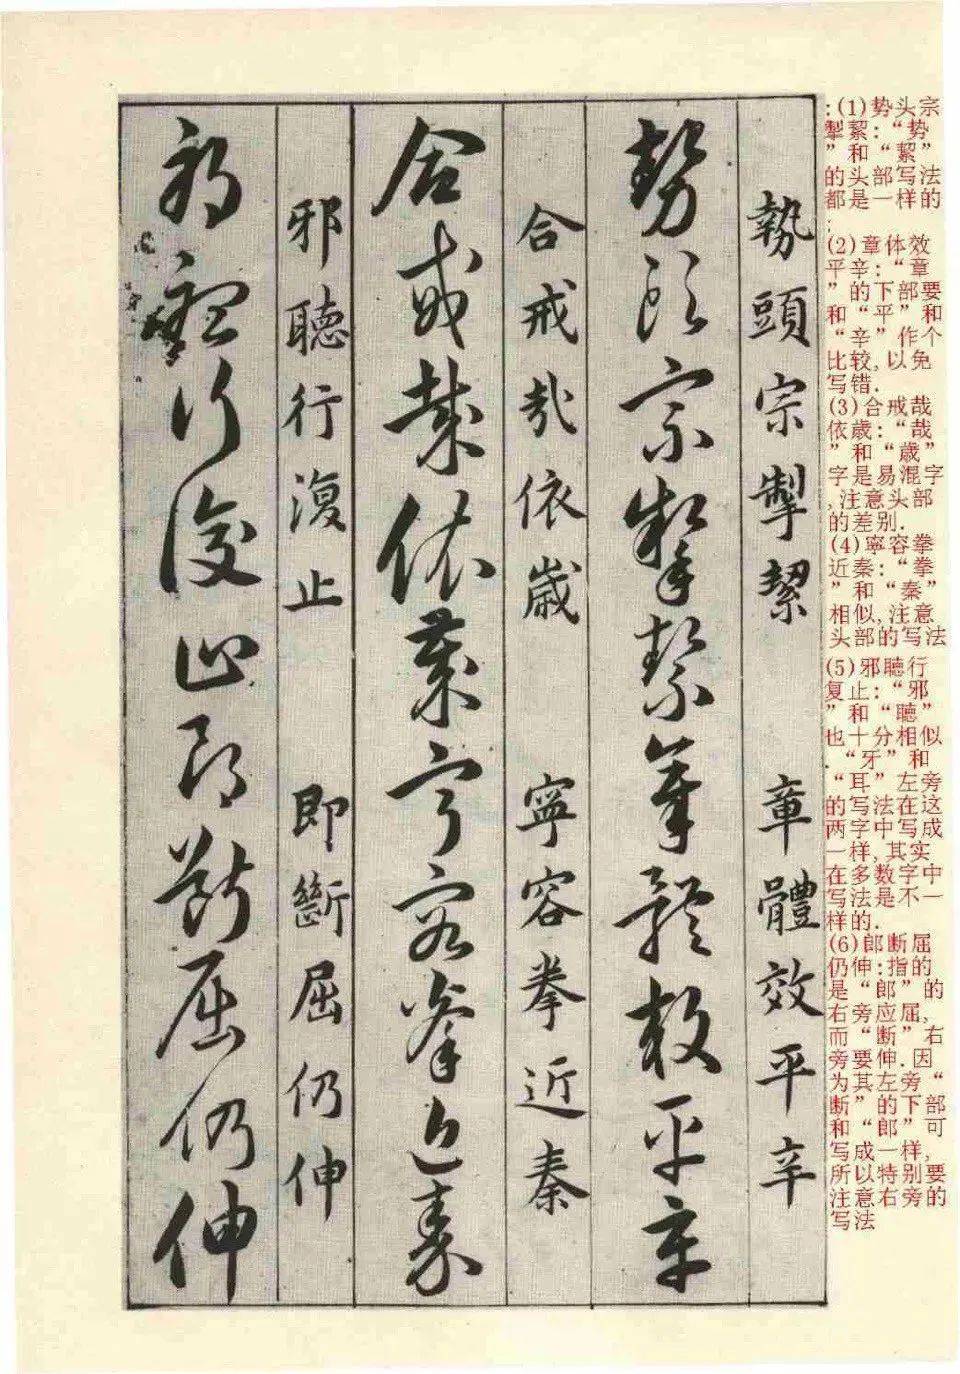 :(1)势头宗
掣絜:“势
”和“絜”
的头部写法
都是一样的
;
(2)章体效
平辛:“章
”的下部要
和“平”和
“辛”作个
比较,以免
写错.
(3)合戒哉
依歳:“哉
”和“歳”
字是易混字
,注意头部
的差别.
(4)寧容拳
近秦:“拳
”和“秦”
相似,注意
头部的写法
(5)邪聴行
复止:“邪
”和“聴”
也十分相似
.“牙”和
“耳”左旁
的写法在这
两字中写成
一样,其实
在多数字中
写法是不一
样的.
(6)郎断屈
仍伸:指的
是“郎”的
右旁应屈,
而“断”右
旁要伸.因
为其左旁“
断”的下部
和“郎”可
写成一样,
所以特别要
注意右旁的
写法
埶頭宗掣絜 章體效平辛
勢頭宗掣絜章體效平辛
合戒哉依歲 寧容拳近秦
合戒哉依歲寧容拳近秦
邪聽行復止 即斷屈仍伸
邪聽行復止即斷屈仍伸